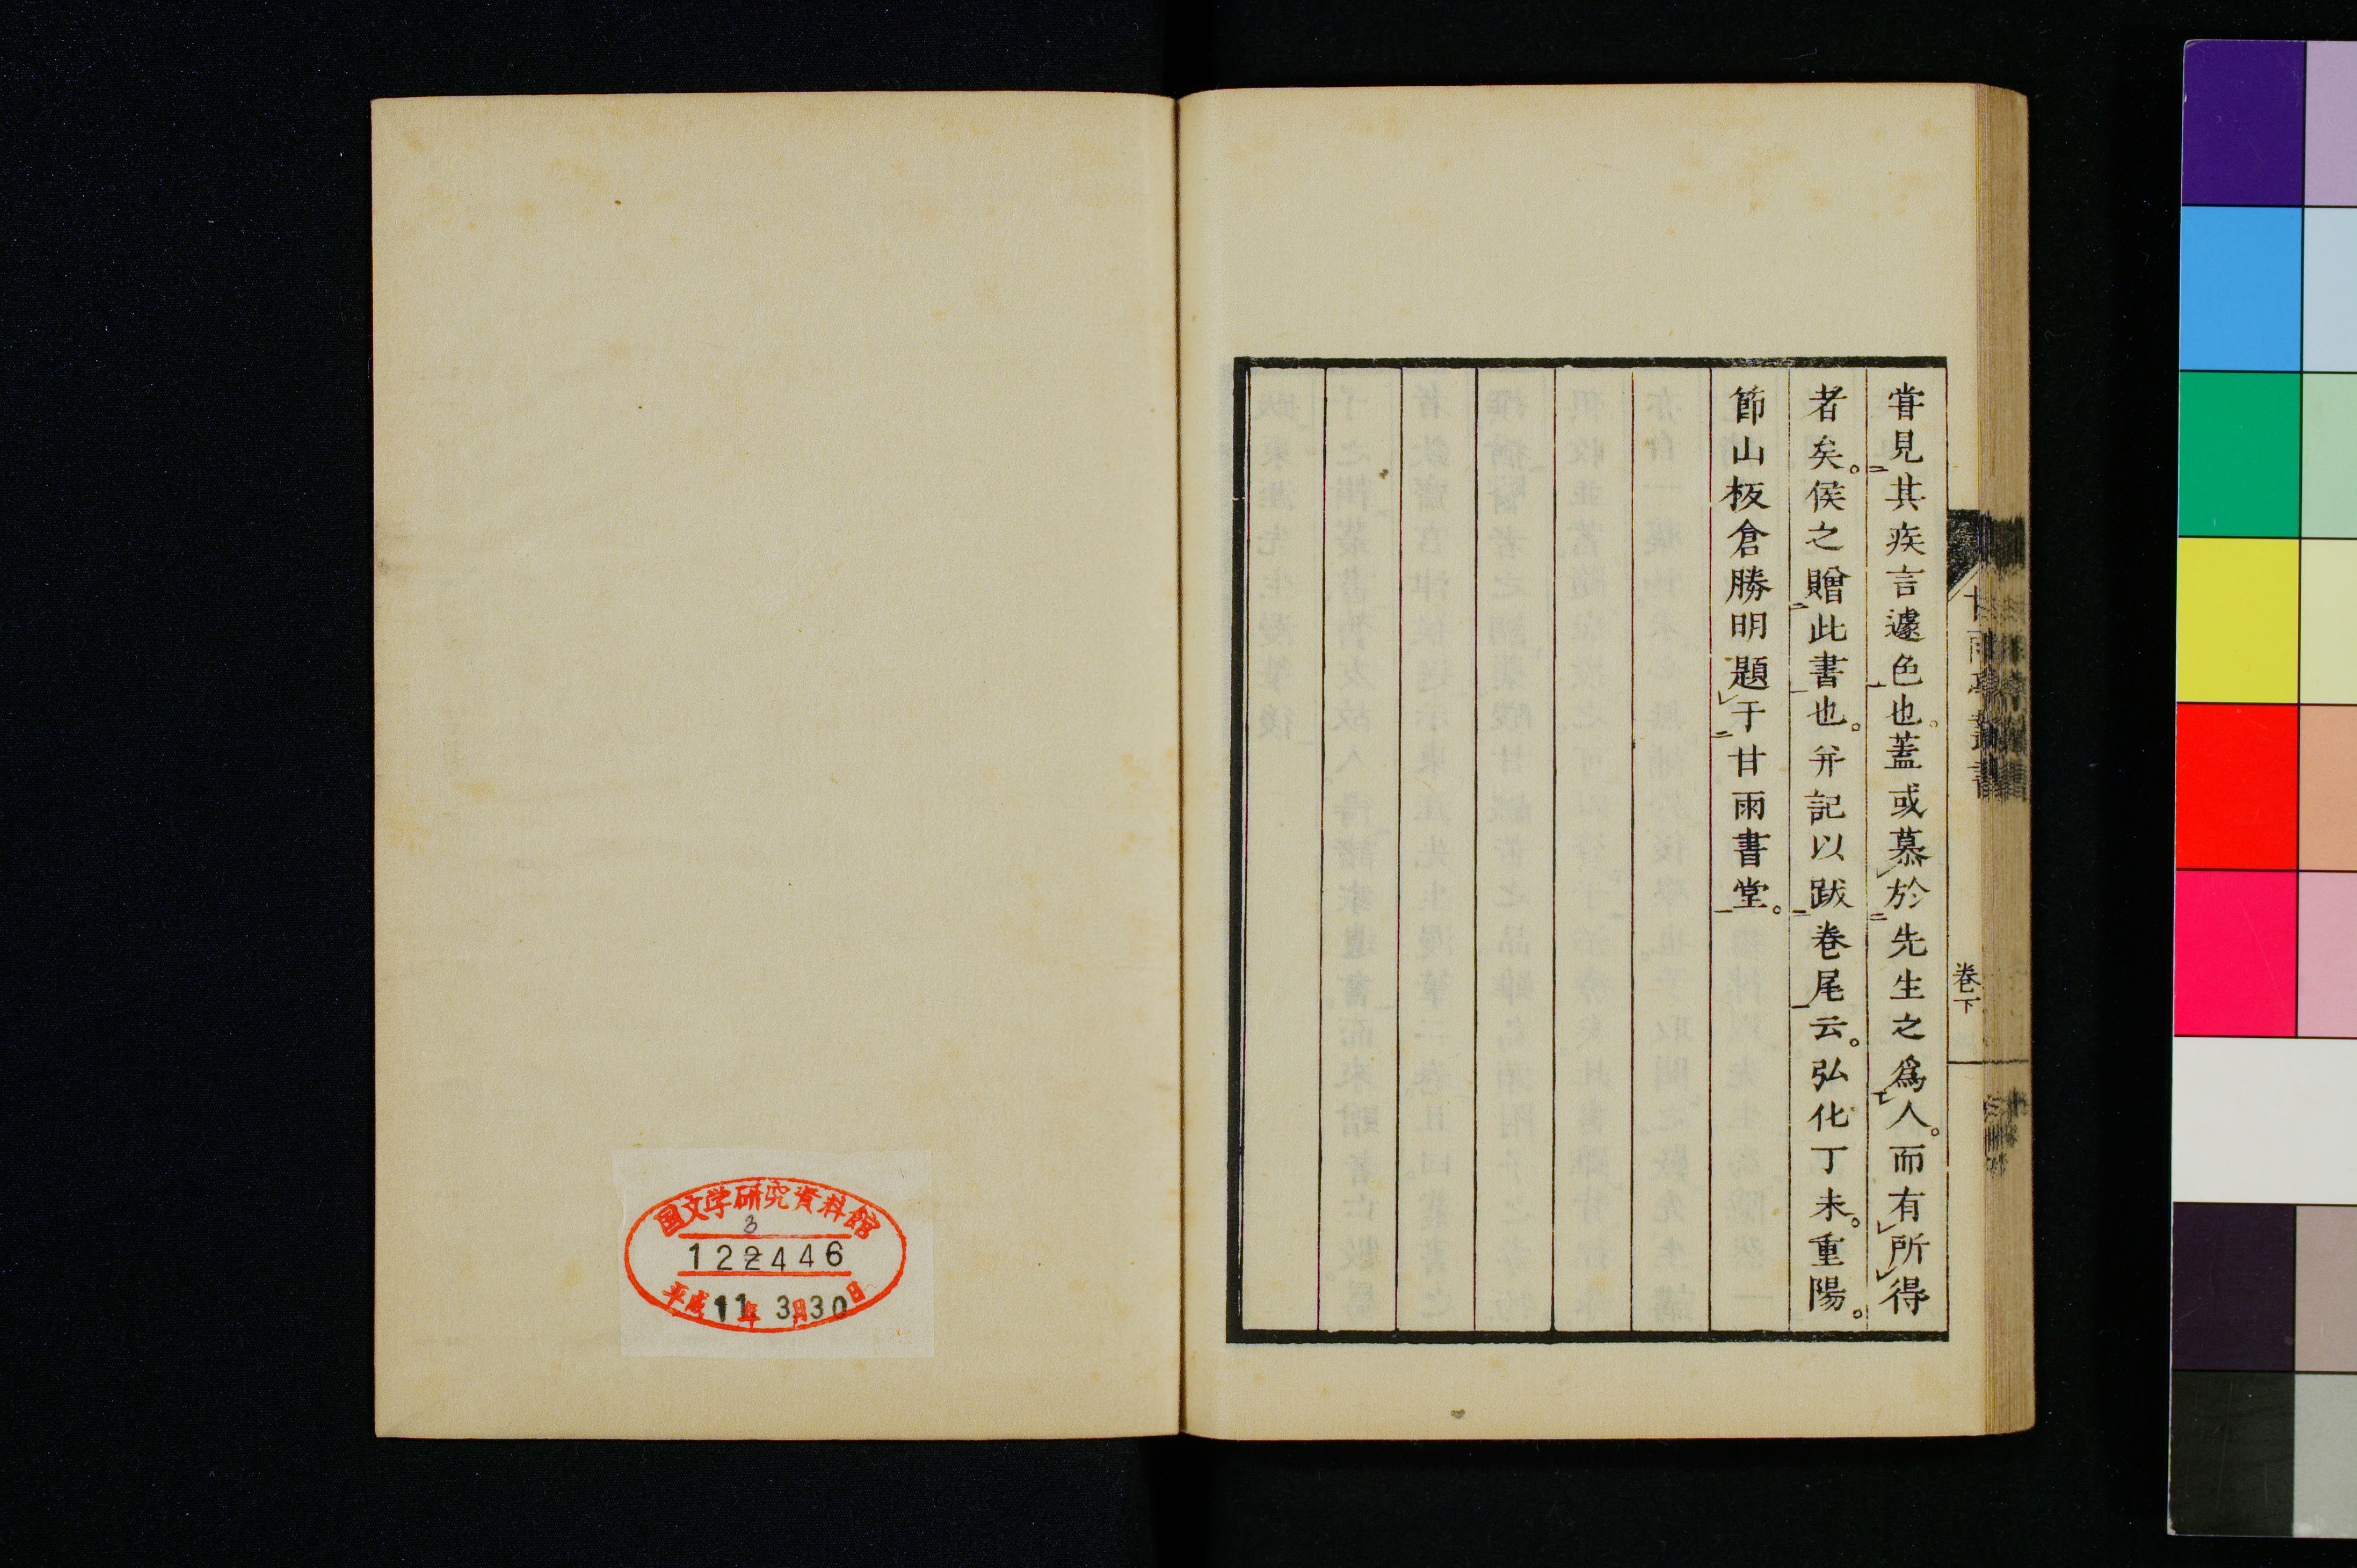 甞見其疾言遽色也。蓋或慕於先生之爲人。而有所得
者矣。侯之贈此書也。幷記以跋卷尾云。弘化丁未。重陽。
節山板倉勝明題于甘雨書堂。
甘雨亭叢書
卷下
国文学研究資料館
3
122446
平成11年3月30日